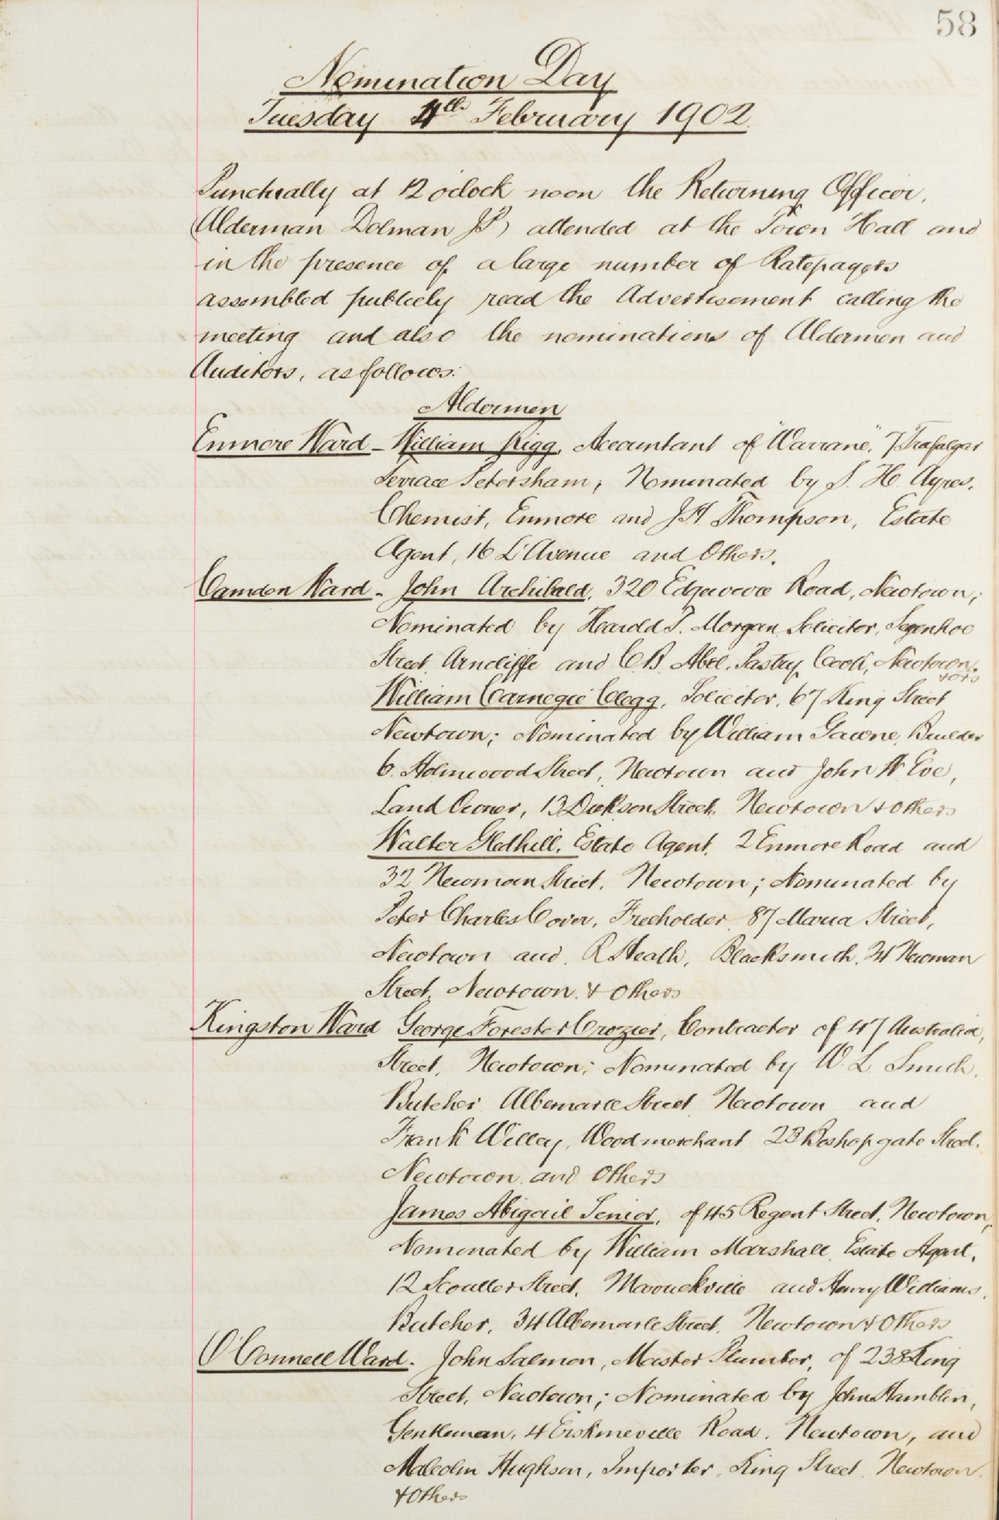 58
Nomination Day
Tuesday 4th February 1902
Punctually at 12 oclock noon the Returning Officer,
(Alderman Dolman JP) attended at the Town Hall and
in the presence of a large number of Ratepayers
assembled publicly read the Advertisement calling the
meeting and also the nominations of Aldermen and
Auditors, as follows:
Aldermen
Enmore Ward - William Rigg, Accountant of "Warrane", 7 Trafalgar
Terrace Petersham; Nominated by S. H. Ayres,
Chemist, Enmore and J H Thompson, Estate
Agent, 16 L'Avenue and Others.
Camden Ward - John Archibald, 320 Edgeware Road, Newtown;
Nominated by Harold T. Morgan, Solicitor, Segenhoe
Street Arncliffe and C B Abel, Pastry Cook, Newtown.
& ors
William Carnegie Clegg, Solicitor, 67 King Street
Newtown; Nominated by William Gawne, Builder
6. Holmwood Street, Newtown and John W Eve,
Land Owner, 13 Dickson Street, Newtown & others
Walter Gledhill, Estate Agent, 2 Enmore Road and
32 Newman Street, Newtown; Nominated by
Peter Charles Cover, Freeholder 87 Maria Street,
Newtown and R Heath, Blacksmith, 24 Newman
Street, Newtown. & others
Kingston Ward George Forester Crozier, Contractor of 47 Australia,
Street, Newtown; Nominated by W L Smith,
Butcher Albemarle Street Newtown and
Frank Willey, Woodmerchant 23 Boshopgate Street.
Newtown, and Others
James Abigail Senior, of 45 Regent Street, Newtown,
Nominated by William Marshall, Estate Agent,
12 Scouller Street, Marrickville and Henry Williams,
Butcher, 34 Albemarle Street, Newtown & Others
O'Connell Ward. John Salmon, Master Plumber, of 238 King
Street, Newtown; Nominated by John Hamblin,
Gentleman, 4 Erskineville Road, Newtown, and
Malcolm Hughson, Importer, King Street, Newtown.
& Others